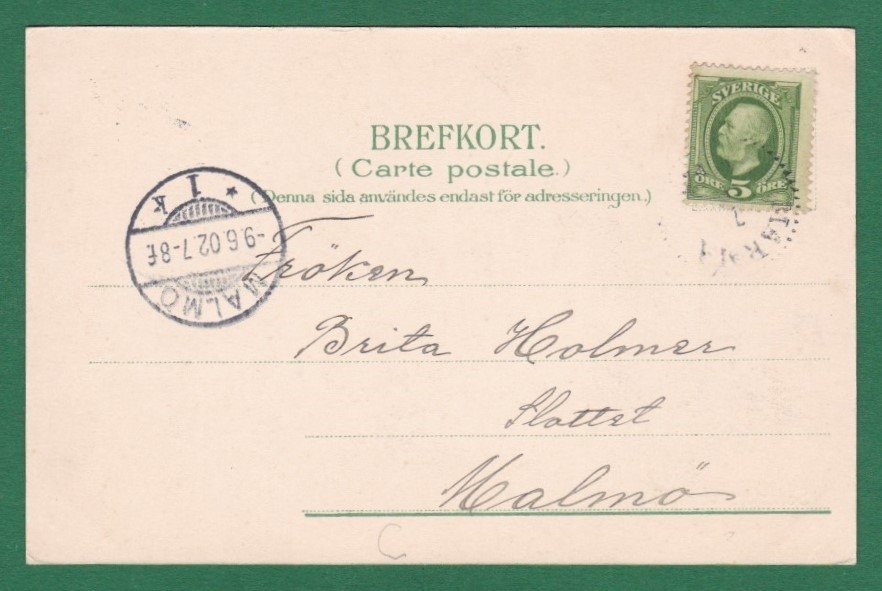 BREFKORT.
(Carte postale.)
(Denna sida användes endast för adresseringen.)
SVERIGE
ÖRE 5 ÖRE
MALMÖ
-9.6.02.7-8f.
* 1 K
Fröken
Brita Holmer
Slottet
Malmö